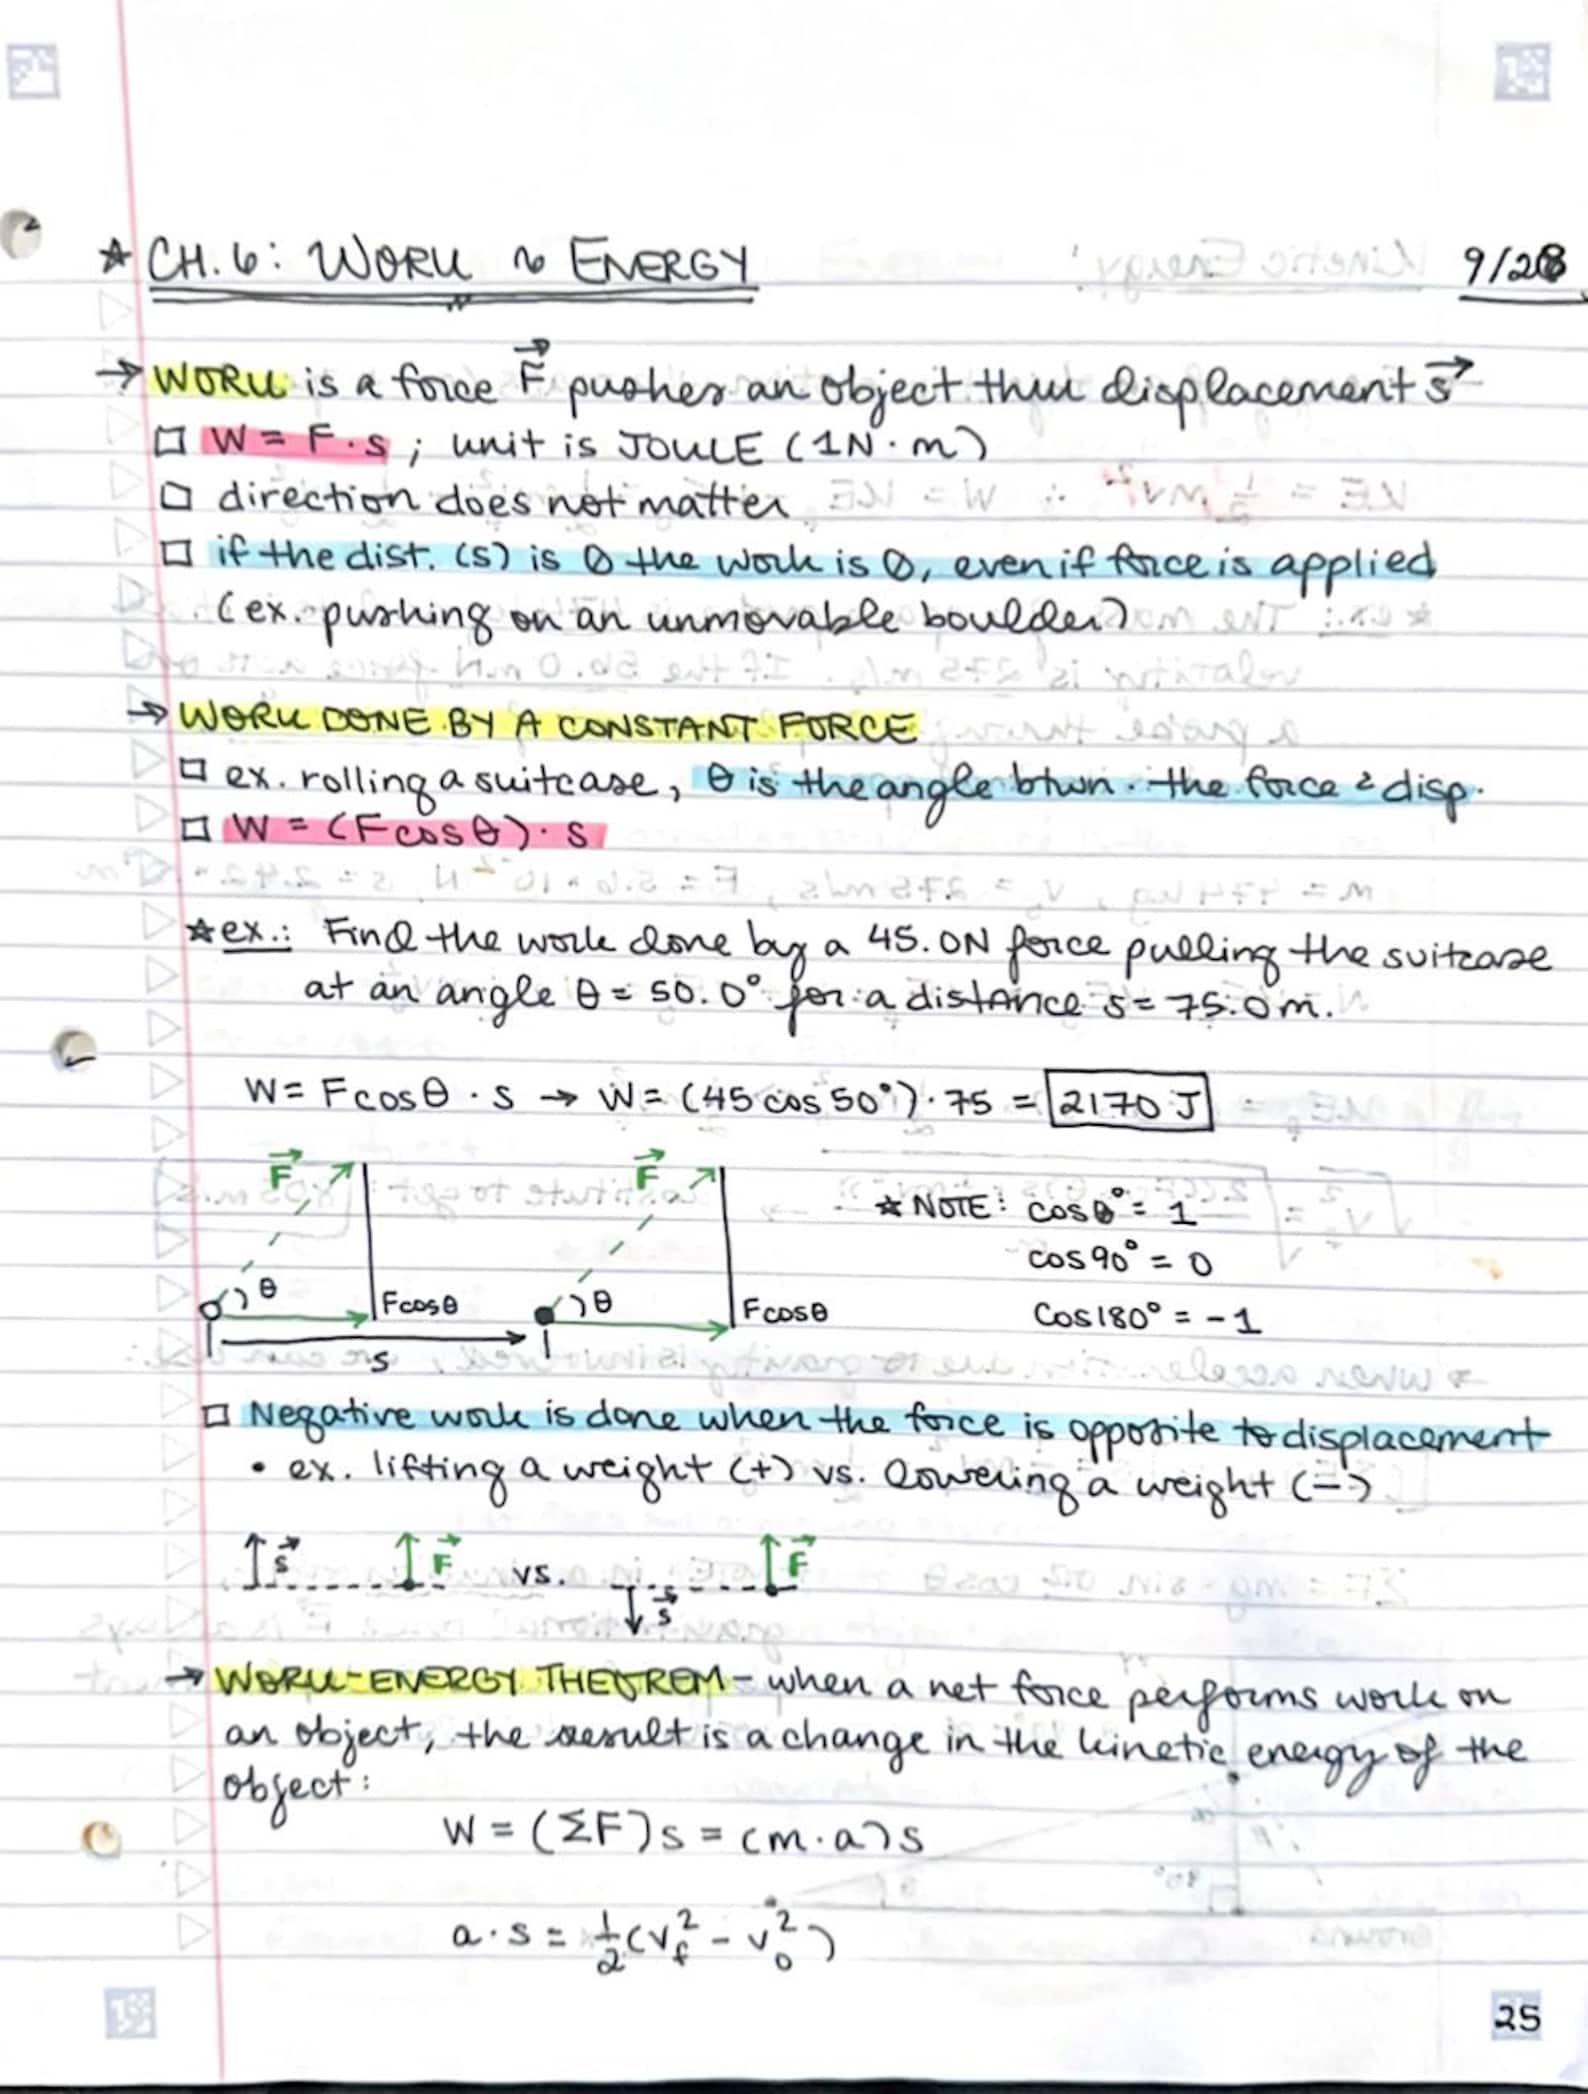 ☆ CH. 6: WORK ~ ENERGY 9/28
→ WORK is a force F⃗ pushes an object thru displacement s⃗
□ W = F · s ; unit is JOULE (1N · m)
□ direction does not matter
□ if the dist. (s) is 0 the work is 0, even if force is applied
(ex. pushing on an unmovable boulder)
→ WORK DONE BY A CONSTANT FORCE
□ ex. rolling a suitcase, θ is the angle btwn. the force & disp.
□ W = (F cos θ) · s
☆ ex.: Find the work done by a 45.0N force pulling the suitcase
at an angle θ = 50.0° for a distance s = 75.0m.
W = F cos θ · s → W = (45 cos 50°) · 75 = 2170 J
F⃗ F⃗
☆ NOTE: cos 0° = 1
cos 90° = 0
θ F cos θ θ F cos θ
cos 180° = -1
s
□ Negative work is done when the force is opposite to displacement
• ex. lifting a weight (+) vs. lowering a weight (-)
s⃗ F⃗ vs. s⃗ F⃗
→ WORK-ENERGY THEOREM - when a net force performs work on
an object, the result is a change in the kinetic energy of the
object:
W = (ΣF)s = (m · a)s
a · s = ½(v_f² - v_0²)
25